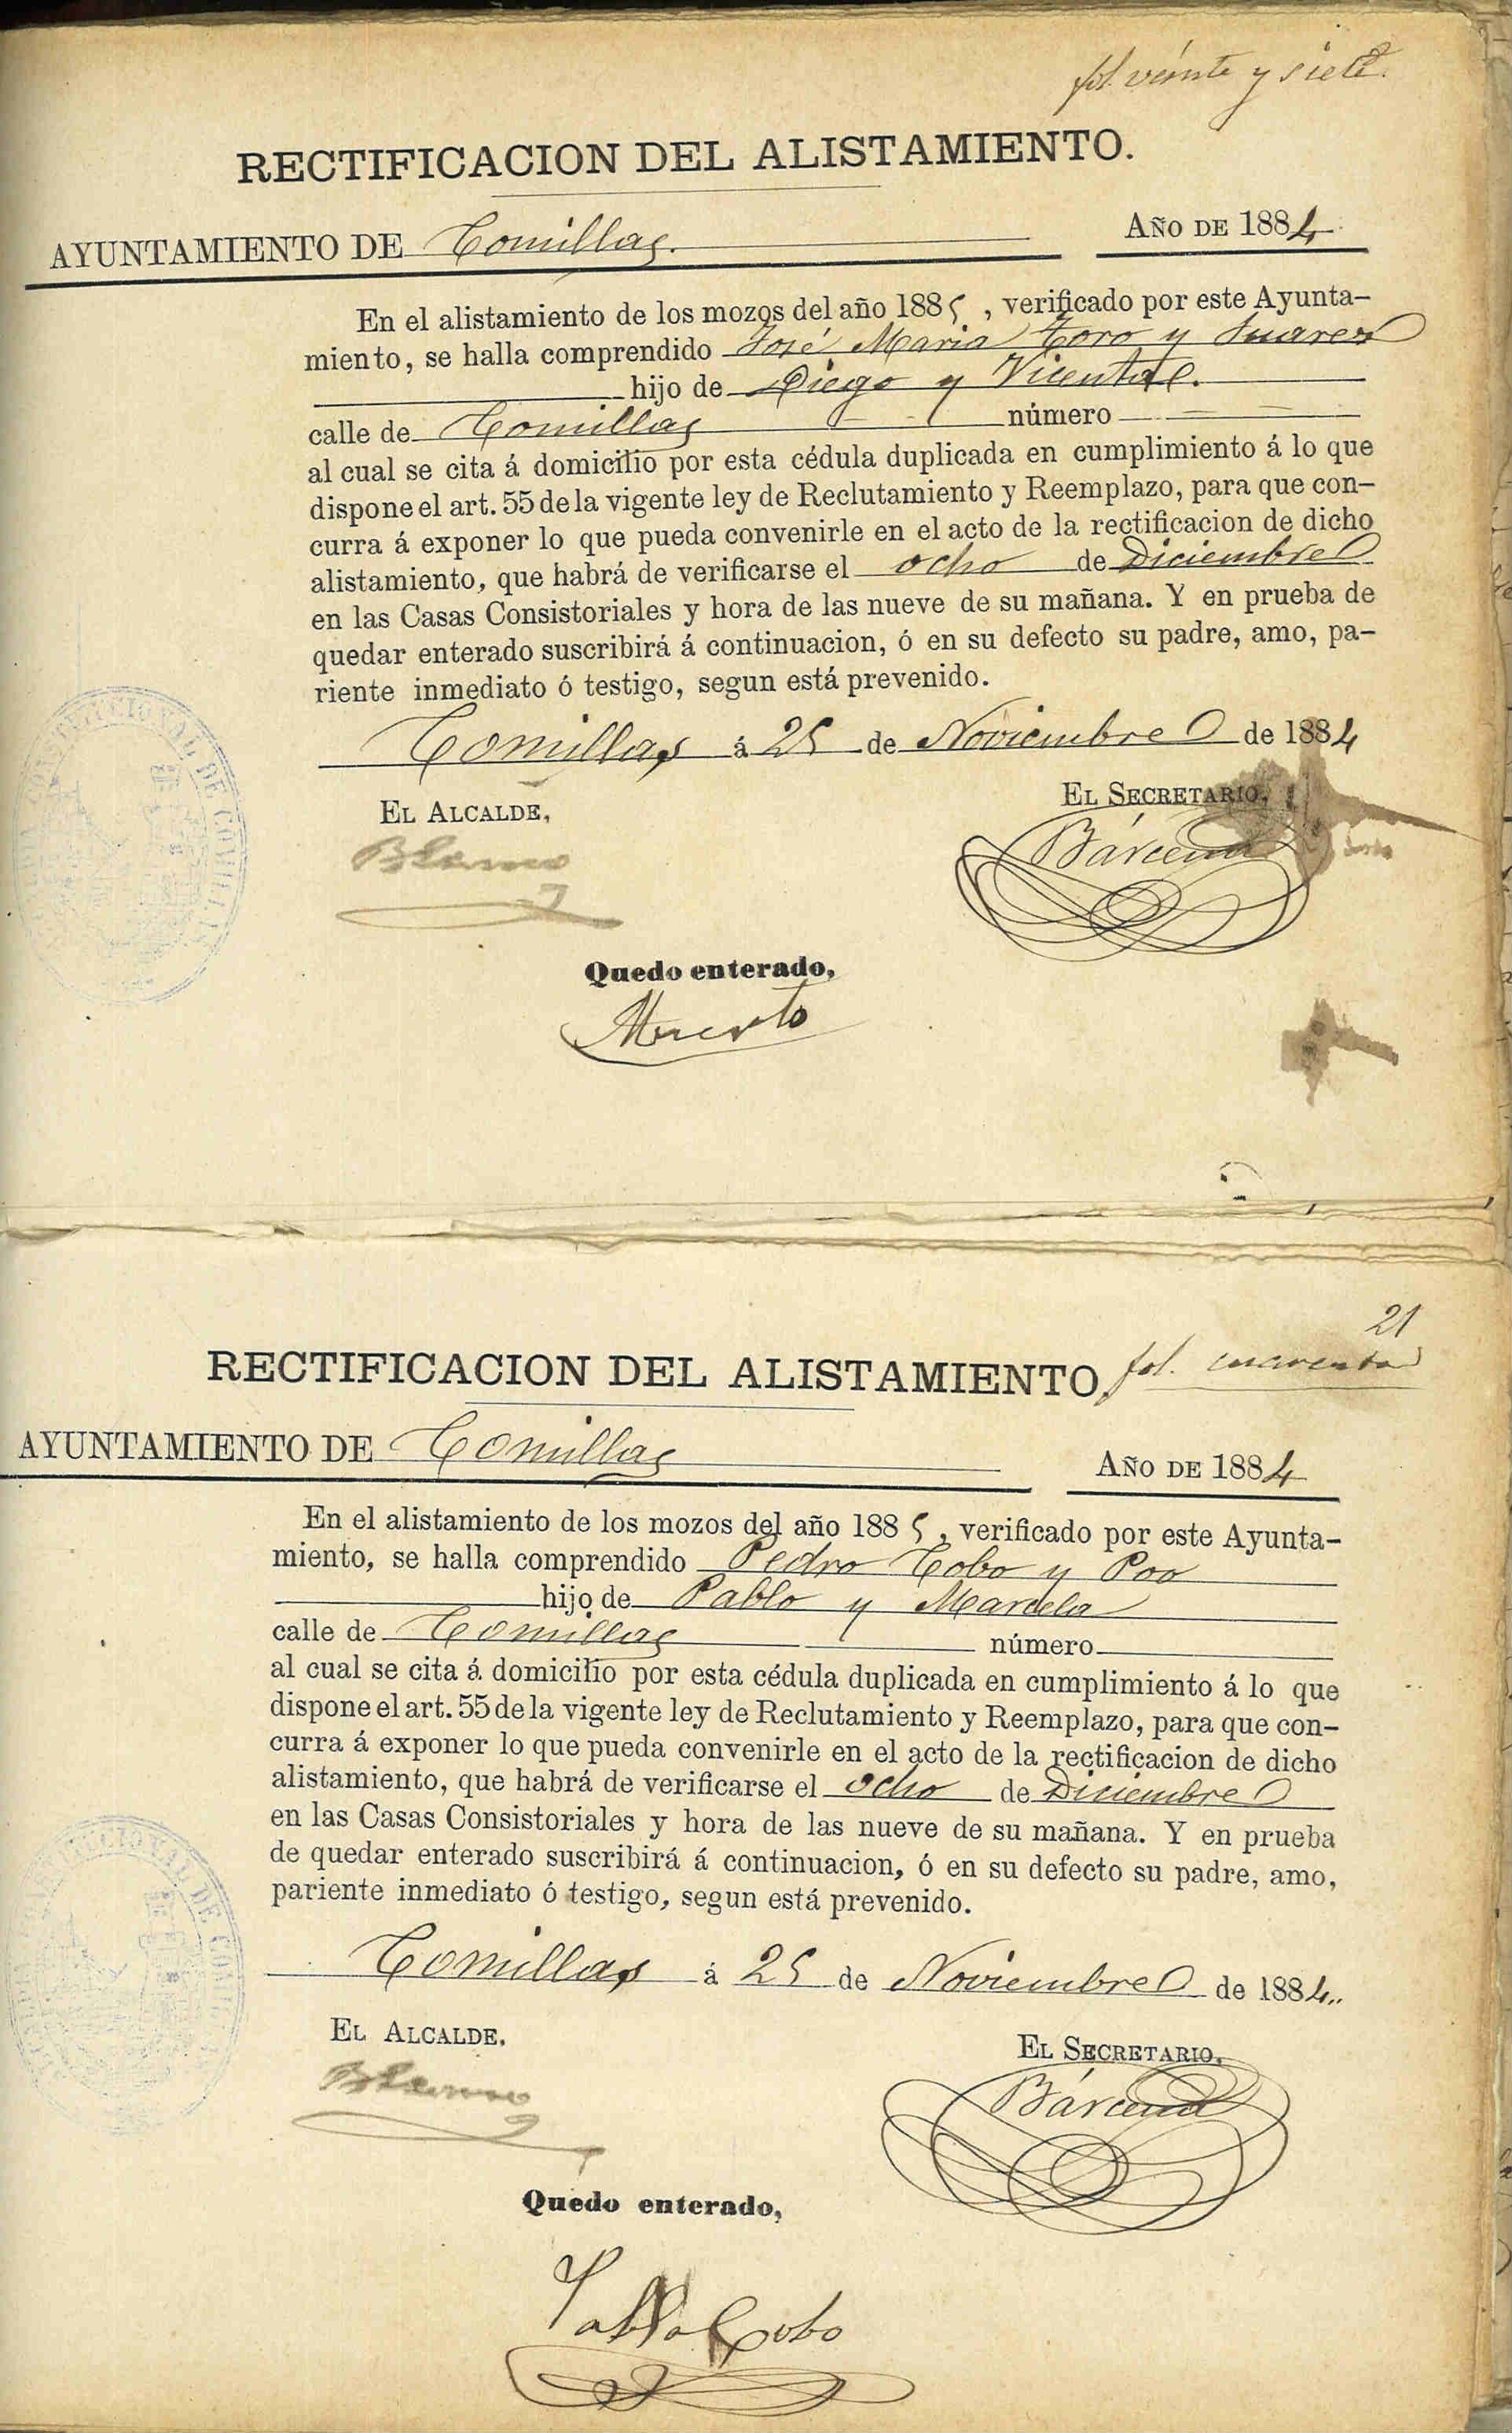 fol. veinte y siete.
RECTIFICACION DEL ALISTAMIENTO.
AYUNTAMIENTO DE Comillas. AÑO DE 1884
En el alistamiento de los mozos del año 1885, verificado por este Ayunta-
miento, se halla comprendido José Maria Toro y Suarez
hijo de Diego y Vicenta
calle de Comillas número
al cual se cita á domicilio por esta cédula duplicada en cumplimiento á lo que
dispone el art. 55 de la vigente ley de Reclutamiento y Reemplazo, para que con-
curra á exponer lo que pueda convenirle en el acto de la rectificacion de dicho
alistamiento, que habrá de verificarse el ocho de Diciembre
en las Casas Consistoriales y hora de las nueve de su mañana. Y en prueba de
quedar enterado suscribirá á continuacion, ó en su defecto su padre, amo, pa-
riente inmediato ó testigo, segun está prevenido.
Comillas á 25 de Noviembre de 1884
EL ALCALDE, EL SECRETARIO,
Blanco Bárcena
Quedo enterado,
Muerto
21
RECTIFICACION DEL ALISTAMIENTO. fol. cuarenta
AYUNTAMIENTO DE Comillas AÑO DE 1884
En el alistamiento de los mozos del año 1885, verificado por este Ayunta-
miento, se halla comprendido Pedro Cobo y Poo
hijo de Pablo y Marcela
calle de Comillas número
al cual se cita á domicilio por esta cédula duplicada en cumplimiento á lo que
dispone el art. 55 de la vigente ley de Reclutamiento y Reemplazo, para que con-
curra á exponer lo que pueda convenirle en el acto de la rectificacion de dicho
alistamiento, que habrá de verificarse el ocho de Diciembre
en las Casas Consistoriales y hora de las nueve de su mañana. Y en prueba
de quedar enterado suscribirá á continuacion, ó en su defecto su padre, amo,
pariente inmediato ó testigo, segun está prevenido.
Comillas á 25 de Noviembre de 1884..
EL ALCALDE, EL SECRETARIO,
Blanco Bárcena
Quedo enterado,
Pablo Cobo